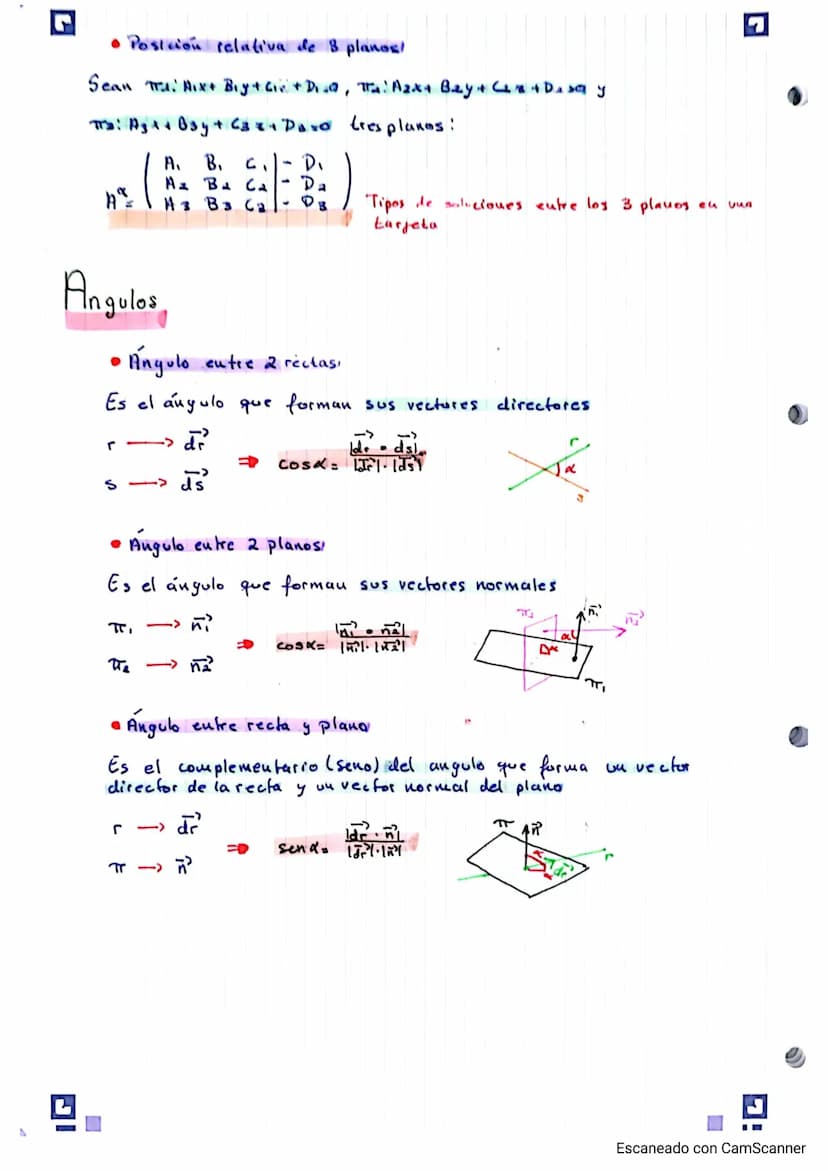 • Posición relativa de 3 planos:
Sean π₁: A₁x + B₁y + C₁z + D₁=0, π₂: A₂x + B₂y + C₂z + D₂=0 y
π₃: A₃x + B₃y + C₃z + D₃=0 tres planos:
A₁ B₁ C₁ | - D₁
A₂ B₂ C₂ | - D₂
A* = A₃ B₃ C₃ | - D₃
Tipos de soluciones entre los 3 planos en una
tarjeta
Angulos
• Ángulo entre 2 rectas:
Es el ángulo que forman sus vectores directores
r → dr⃗
s → ds⃗
⇒ cosα = |dr⃗ · ds⃗| / |dr⃗| · |ds⃗|
r
α
s
• Ángulo entre 2 planos:
Es el ángulo que forman sus vectores normales
π₁ → n₁⃗
π₂ → n₂⃗
⇒ cosα = |n₁⃗ · n₂⃗| / |n₁⃗| · |n₂⃗|
π₂ n₁⃗ n₂⃗
α
α
π₁
• Ángulo entre recta y plano
Es el complementario (seno) del angulo que forma un vector
director de la recta y un vector normal del plano
r → dr⃗
π → n⃗
⇒ senα = |dr⃗ · n⃗| / |dr⃗| · |n⃗|
π n⃗
α r
dr⃗
α
Escaneado con CamScanner